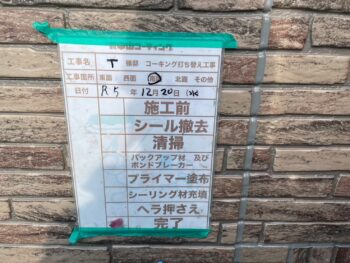 工事名 T 様邸 コーキング打ち替え工事
工事箇所 東面 西面 南面 北面 その他
日付 R5 年 12月 20日
施工前
シール撤去
清掃
バックアップ材 及び
ボンドブレーカー
プライマー塗布
シーリング材充填
ヘラ押さえ
完了